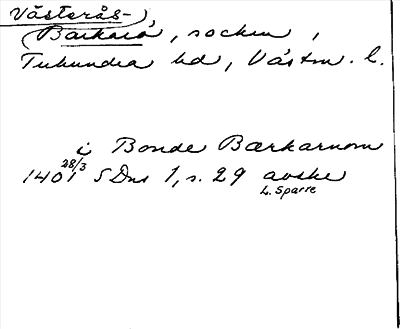 Västerås-
(Barkarö, socken,
Tuhundra hd, Västm. l.
i Bonde Bærkarnom
1401 28/3 SDns 1, s. 29 avskr
L. Sparre